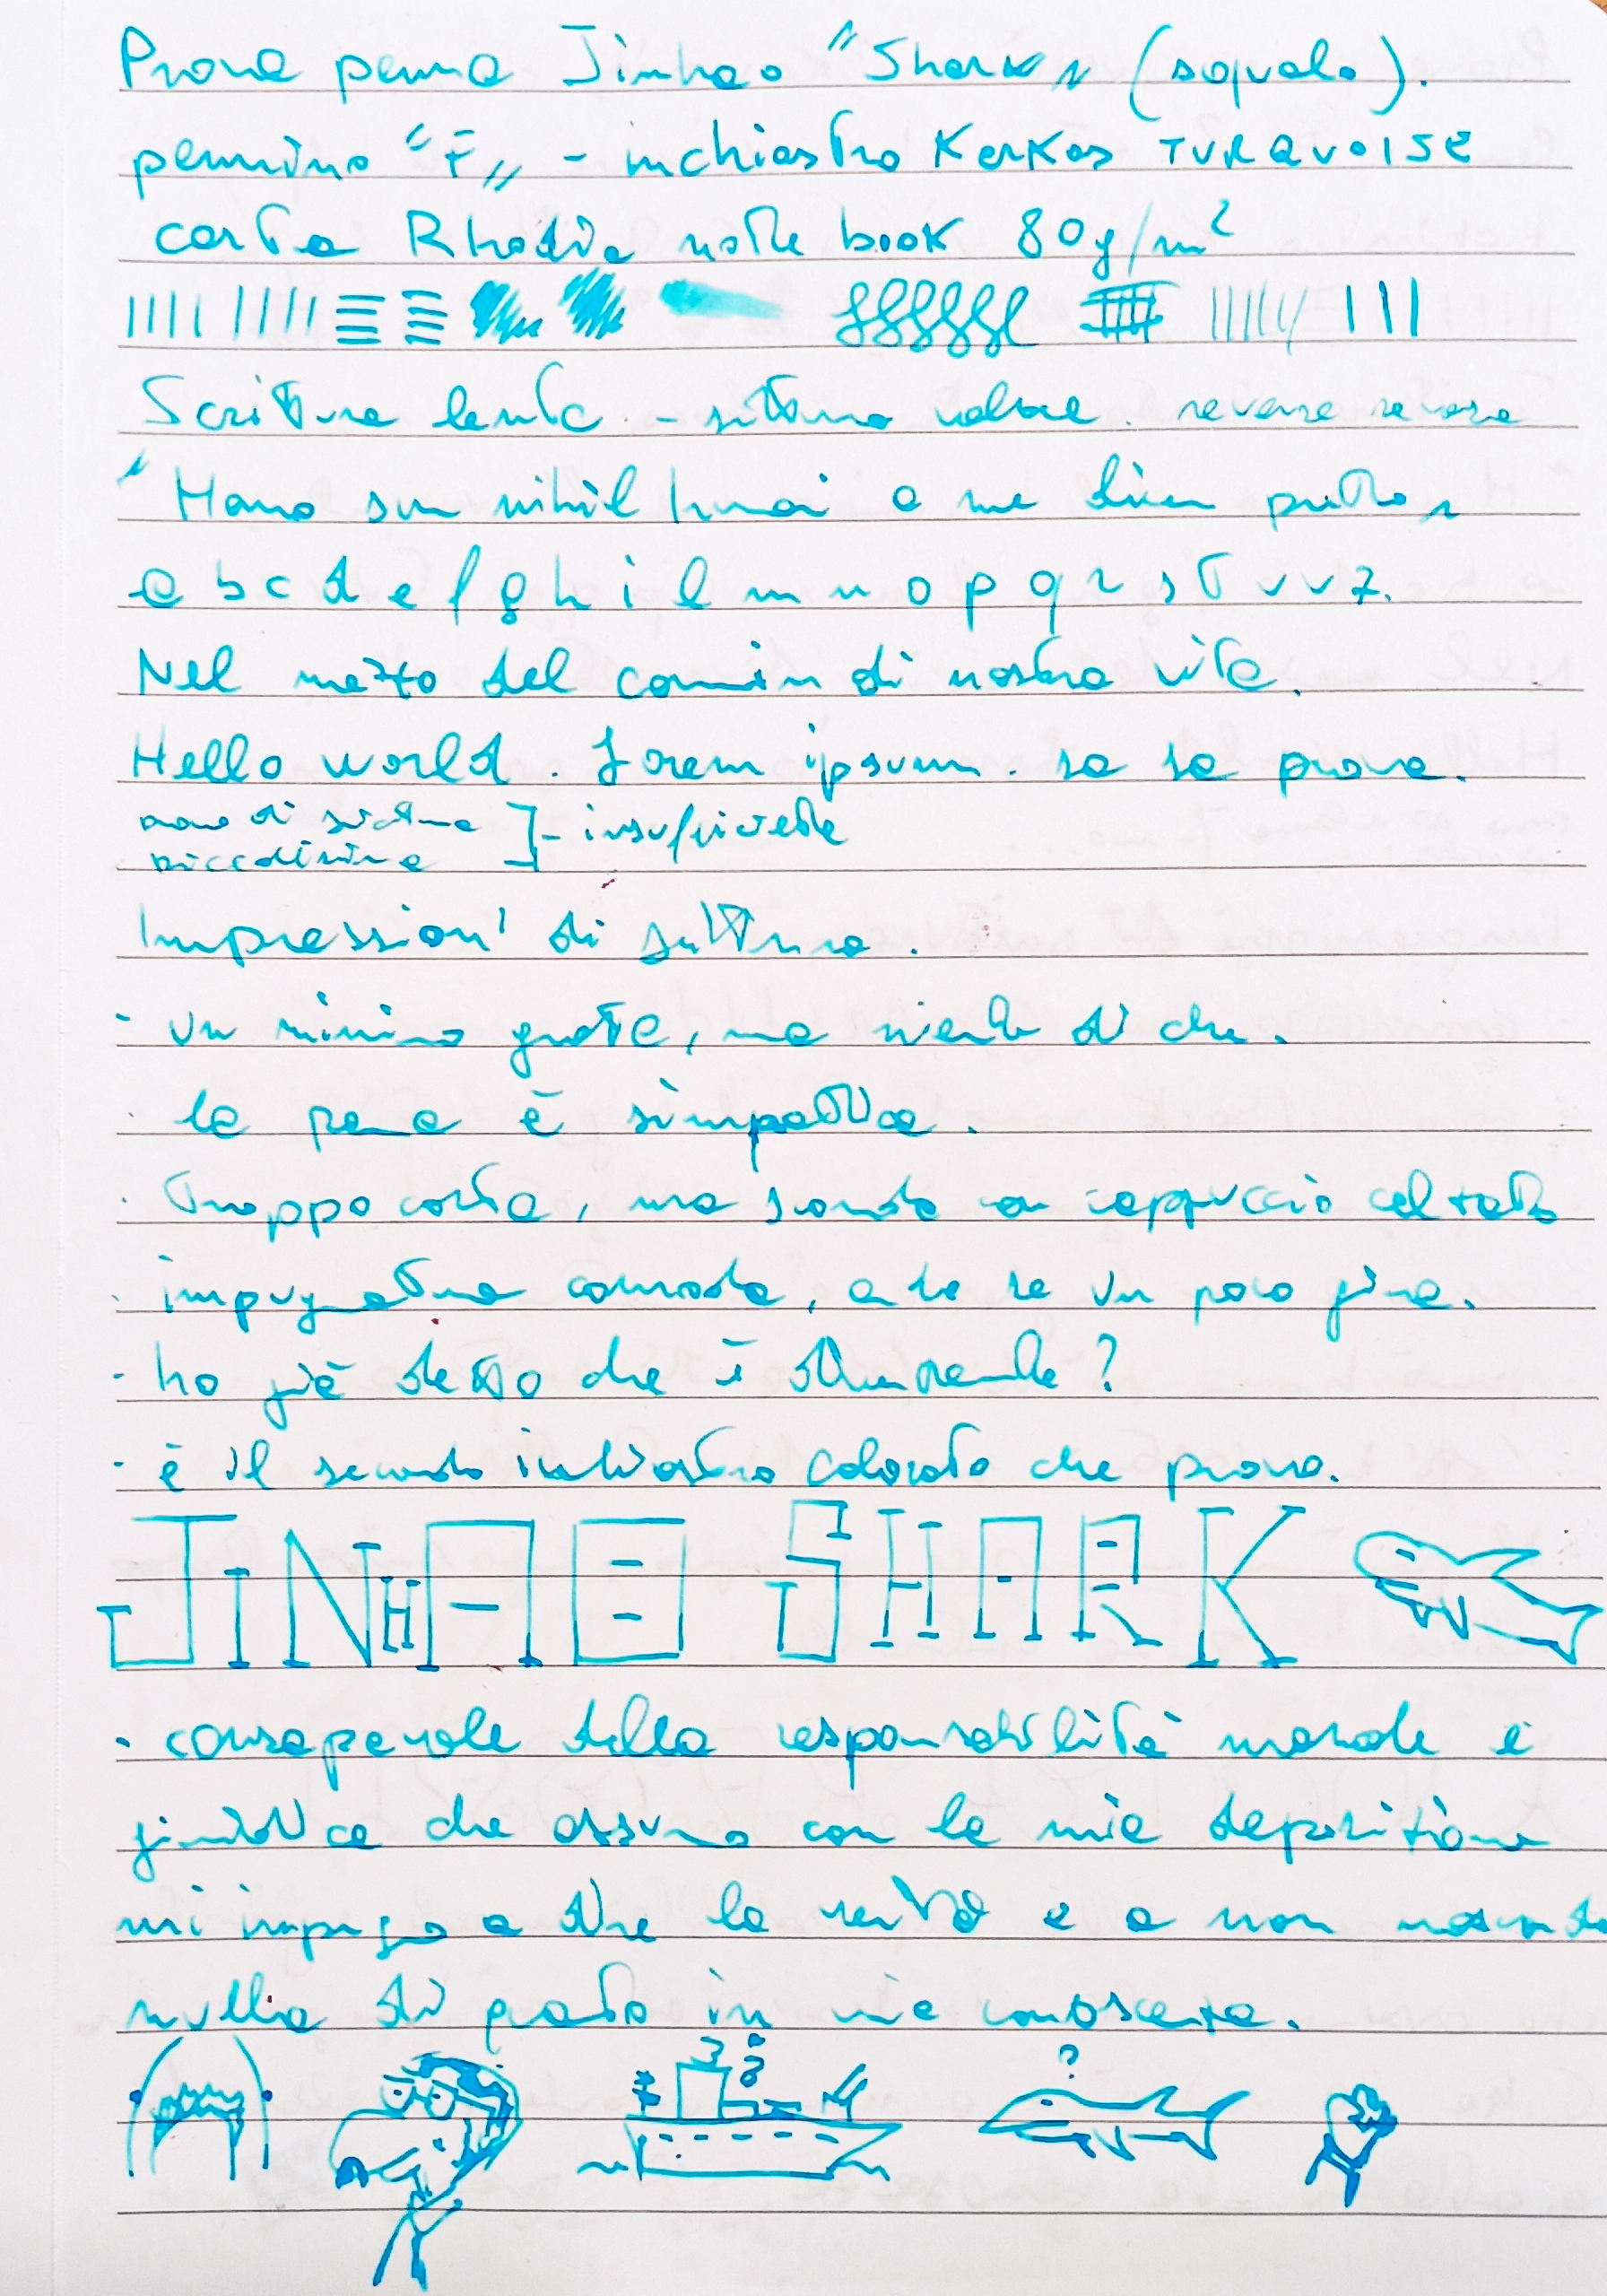 Prova penna Jinhao "Shark" (squalo).
pennino "F" - inchiostro KerKos TURQUOISE
carta Rhodia note book 80g/m²
Scrittura lenta - scrittura veloce. reverse reverse
"Homo sum nihil humani a me puto"
a b c d e f g h i l m n o p q r s t u v z.
Nel mezzo del cammin di nostra vita.
Hello world. Lorem ipsum. sa sa prova.
prova di scrittura ]- insufficiente
piccolissima
Impressioni di scrittura.
- un minimo gratta, ma niente di che.
. la penna è simpatica.
. troppo corta, ma comoda con cappuccio calzato
. impugnatura comoda, anche se un poco fina.
- ho già detto che è divertente?
- è il secondo inchiostro colorato che provo.
JINHAO SHARK
. consapevole della responsabilità morale e
giuridica che assumo con la mia deposizione
mi impegno a dire la verità e a non nascondere
nulla di quanto in mia conoscenza.
?